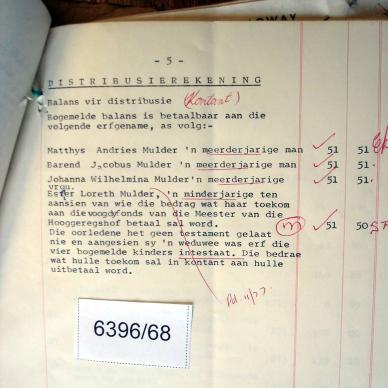 - 5 -
DISTRIBUSIEREKENING
Balans vir distribusie (Kontant)
Bogemelde balans is betaalbaar aan die
volgende erfgename, as volg:-
Matthys Andries Mulder 'n meerderjarige man 51 51
Barend Jacobus Mulder 'n meerderjarige man 51 51.
Johanna Wilhelmina Mulder'n meerderjarige 51 51.
vrou.
Ester Loreth Mulder, 'n minderjarige ten
aansien van wie die bedrag wat haar toekom
aan die voogdyfonds van die Meester van die
Hooggeregshof betaal sal word. (m) 51 50
Die oorledene het geen testament gelaat
nie en aangesien sy 'n weduwee was erf die
vier bogemelde kinders intestaat. Die bedrae
wat hulle toekom sal in kontant aan hulle
uitbetaal word.
6396/68